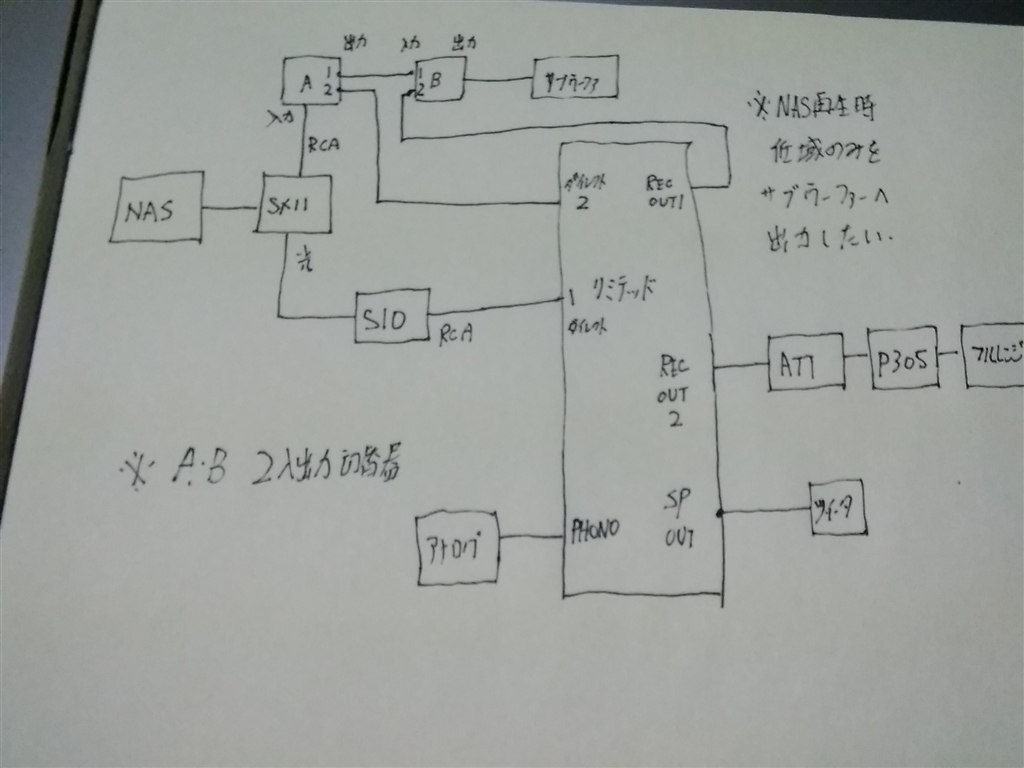 出力
入力
出力
A
1
2
1
2
B
サブウーファ
入力
RCA
※NAS再生時
低域のみを
サブウーファーへ
出力したい.
NAS
SX11
ダイレクト
2
REC
OUT1
光
S10
RCA
1 リミテッド
ダイレクト
REC
OUT
2
ATT
P305
フルレンジ
※ A.B 2入出力切替器
アナログ
PHONO
SP
OUT
ツィータ